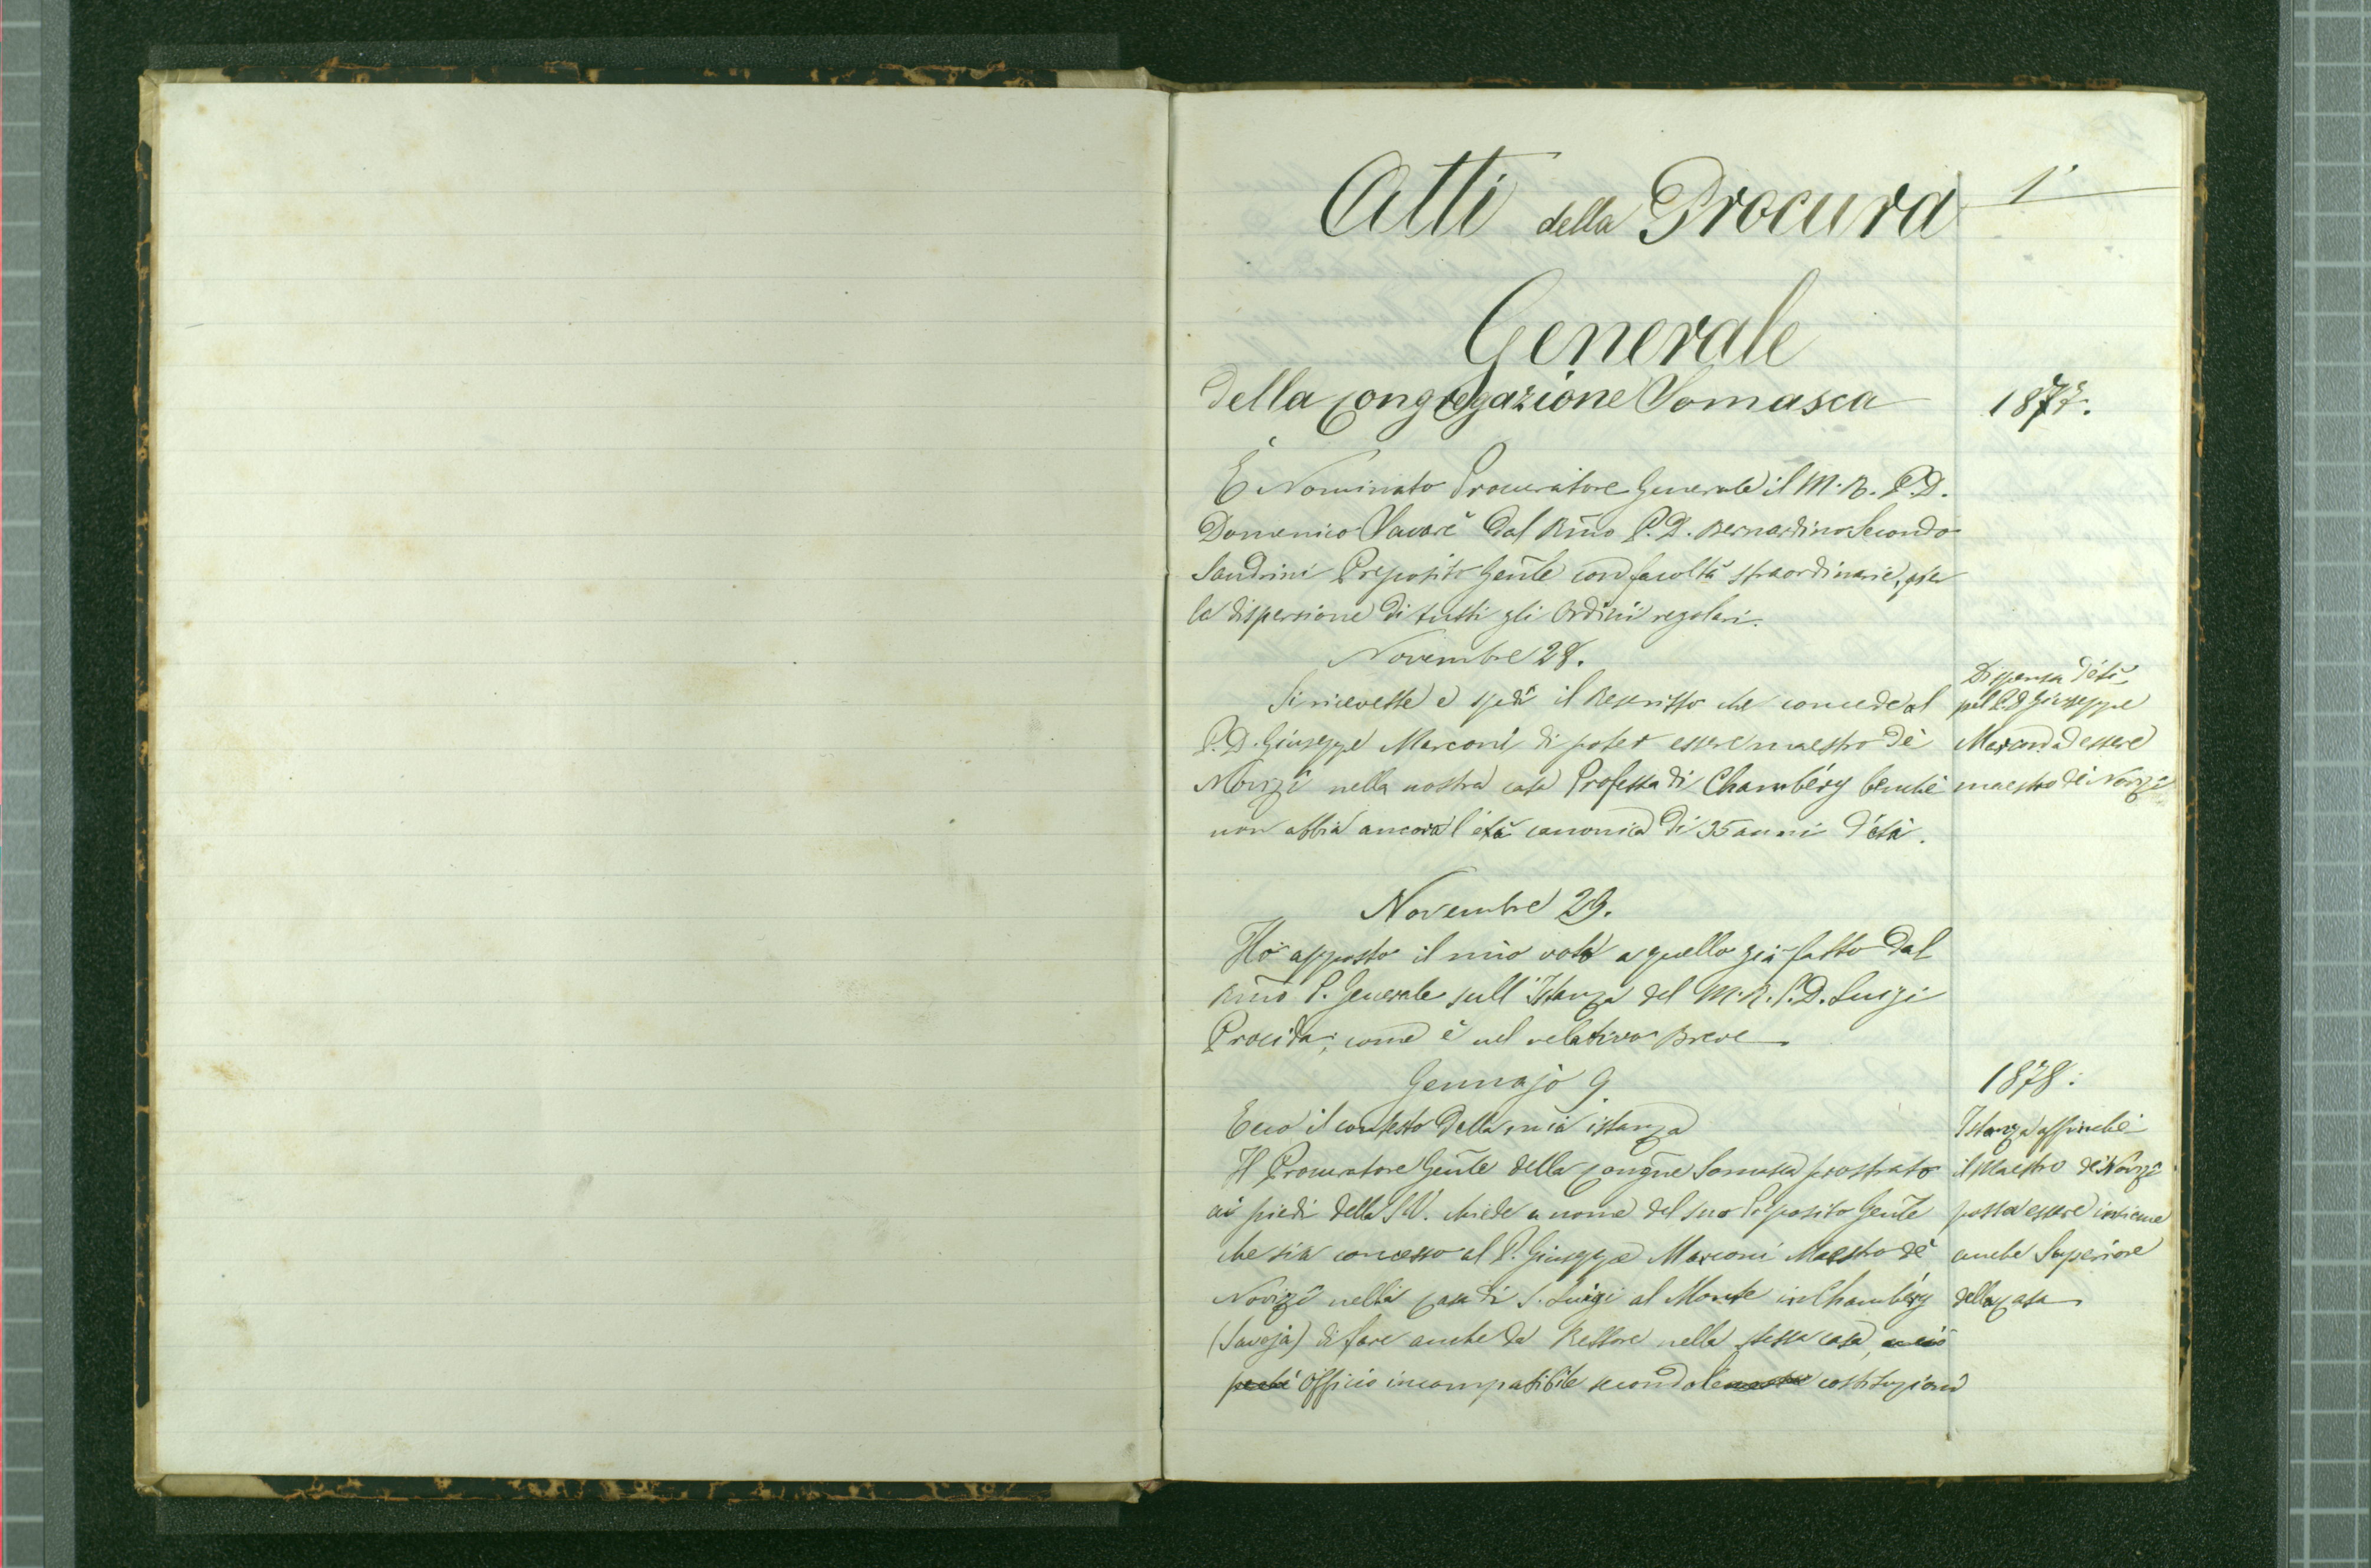 Atti della Procura
1°
Generale
della Congregazione Somasca
1877.
È Nominato Procuratore Generale il M. R. P. D.
Domenico Savarè dal Rmo P. D. Bernardino Secondo
Sandrini Preposito Genle con facoltà straordinarie, per
la dispersione di tutti gli Ordini regolari.
Novembre 28.
Si ricevette e spedì il Rescritto che concede al
P. D. Giuseppe Marconi di poter essere maestro de'
Novizî nella nostra casa Professa di Chambéry benchè
non abbia ancora l'età canonica di 35 anni d'età.
Dispensa d'età
pel P. D. Giuseppe
Marconi ad essere
maestro de' Novizî
Novembre 29.
Ho apposto il mio voto a quello già fatto dal
Rmo P. Generale sull'Istanza del M. R. P. D. Luigi
Procida; come è nel relativo Breve
Gennajo 9
1878.
Ecco il contesto della mia istanza
Il Procuratore Genle della Congne Somasca prostrato
ai piedi della S.V. chiede a nome del suo Preposito Genle
che sia concesso al P. Giuseppe Marconi Maestro de'
Novizî nella casa di S. Luigi al Monte in Chambéry
(Savoja) di fare anche da Rettore nella stessa casa, e ciò
perchè Officio incompatibile secondo le nostre costituzioni
Istanza affinchè
il Maestro de' Novizî
possa essere insieme
anche Superiore
della casa